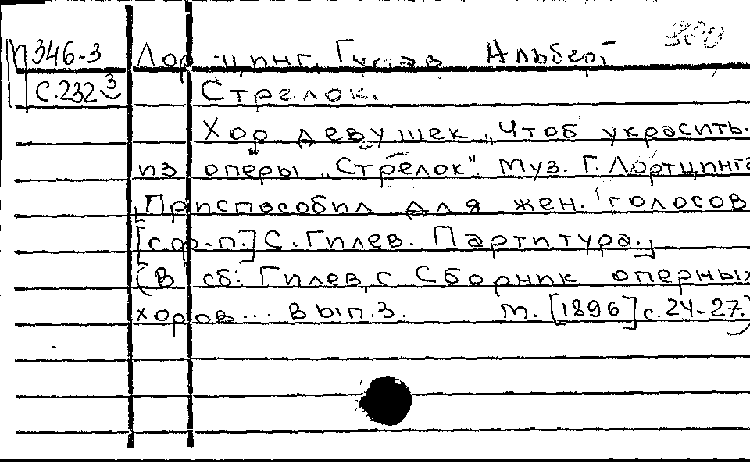 М 346-3 Лорцинг, Густав Альберт
С.232 3 Стрелок.
Хор девушек „Чтоб украсить"
из оперы „Стрелок". Муз. Г. Лортцинга
Приспособил для жен. голосов
[с ф.-п.] С. Гилев. Партитура.
(В сб: Гилев, С Сборник оперных
хоров... Вып. 3. М. [1896] с. 24-27.)